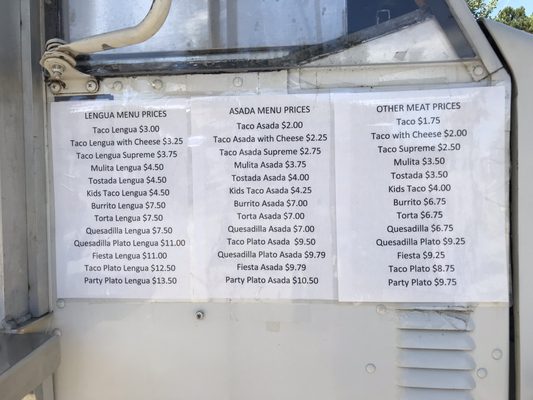 LENGUA MENU PRICES
Taco Lengua $3.00
Taco Lengua with Cheese $3.25
Taco Lengua Supreme $3.75
Mulita Lengua $4.50
Tostada Lengua $4.50
Kids Taco Lengua $4.50
Burrito Lengua $7.50
Torta Lengua $7.50
Quesadilla Lengua $7.50
Quesadilla Plato Lengua $11.00
Fiesta Lengua $11.00
Taco Plato Lengua $12.50
Party Plato Lengua $13.50
ASADA MENU PRICES
Taco Asada $2.00
Taco Asada with Cheese $2.25
Taco Asada Supreme $2.75
Mulita Asada $3.75
Tostada Asada $4.00
Kids Taco Asada $4.25
Burrito Asada $7.00
Torta Asada $7.00
Quesadilla Asada $7.00
Taco Plato Asada $9.50
Quesadilla Plato Asada $9.79
Fiesta Asada $9.79
Party Plato Asada $10.50
OTHER MEAT PRICES
Taco $1.75
Taco with Cheese $2.00
Taco Supreme $2.50
Mulita $3.50
Tostada $3.50
Kids Taco $4.00
Burrito $6.75
Torta $6.75
Quesadilla $6.75
Quesadilla Plato $9.25
Fiesta $9.25
Taco Plato $8.75
Party Plato $9.75